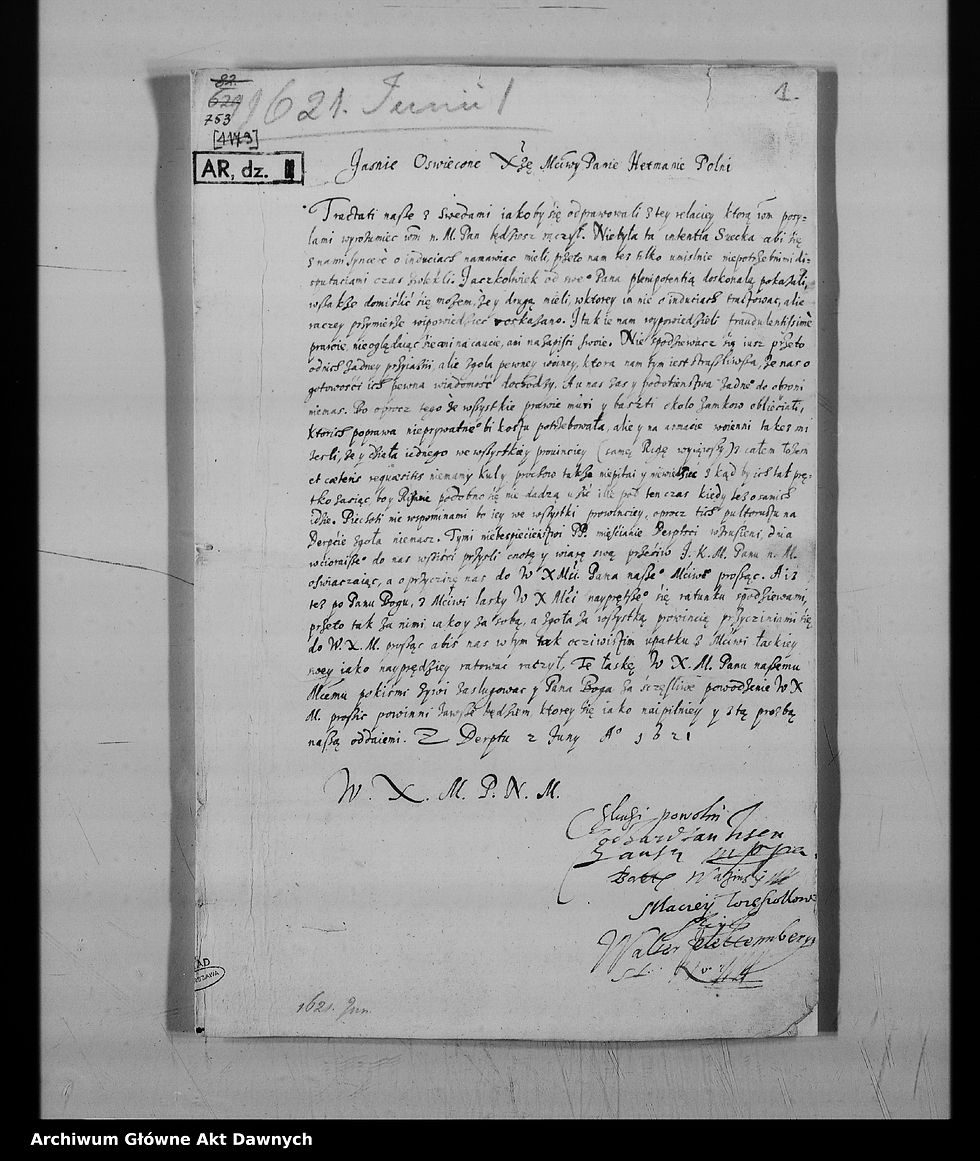 82
629
753
[1143]
1621. Junii 1
1.
AR, dz. II
Jasnie Oswiecone Xżę Mciwy Panie Hetmanie Polni
Tractati nasze z Swedami iakoby się odprawowali z tey relaciey ktorą iom posy-
lami wyrozumiec iom n. M. Pan będziesz raczył. Niebyla ta intentia Suecka abi się
z nami sincere o induciach namawiac mieli, przeto nam tes tilko umislnie niepotrzebnimi di-
sputaciami czas zwlekli. Jaczkolwiek od sweo Pana plenipotentią doskonalą pokazali,
wszakze domislić się mozem, że y drugą mieli, w ktorey im nie o induciach tractowac, alie
raczey przymierze wipowiedziec roskazano. I tak ie nam wypowiedzieli fraudulentissime
prawie, nie oglądaiąc się ani na caucie, ani na zapisi swoie. Nie spodziewac się iusz przeto
od nich żadney przyiazni, alie zgola pewney woiney, ktora nam tym iest straszliwsza, że nas o
gotowości ich pewna wiadomość dochodzy. A u nas zas y podobienstwa żadneo do obroni
niemas. Bo oprocz tego że wszystkie prawie muri y baszti okolo zamkow oblieciali,
ktorich poprawa nieprywatneo bi kosztu potrzebowala, alie y na armacie woienni takes mi
zesli, że y dziala iednego we wszystkiey prowinciey (samey Rigę wyiąwszy) z calem lożem
et cæteris requisitis niemamy kuly, prochow takze niepitai y niewiedziec z kąd by ich tak prę-
tko zasiąc, bo y Rizanie podobno się nie dadzą użić ille pod ten czas kiedy tes o samich
idzie. Piechoti nie wspominami bo iey we wszystki prowinciey, oprocz tich pultorustu na
Derpcie zgola niemasz. Tymi niebespieciénstwi PP. mieścianie Derptsci wzruszeni, dnia
wcioraiszeo do nas wszisci przysli cnotę y wiarę swą przeciw J. K. M. Panu n. M.
oświaczaiąc, a o przyczinę nas do W X Mci Pana naszeo Mciweo prosząc. A iż
tez po Panu Bogu, z Mciwi lasky W X Mci nayprętszeo się ratunku spodziewami,
przeto tak za nimi iako y za sobą, a zgola za wszystką prowincią przycziniami się
do W. X. M. prosząc abiś nas w tym tak ocziwistim upatku z Mciwi laskiey
swey iako nayprędziey ratowac raczyl. Tę laskę W X. M. Panu naszemu
Mcemu pokismi żywi zaslugowac y Pana Boga za sczęsliwe powodzenie W X
M. prosic powinni zawsze będziem, ktorey się iako naipilniey y z tą prozbą
naszą oddaiemi. Z Derptu 2 Juny Ao 1621
W. X. M. P. N. M.
Slugi powolni
Maciey Wiesiollows
Walter Plettemberg
1621. Jun.
AD
SZAWA
Archiwum Główne Akt Dawnych